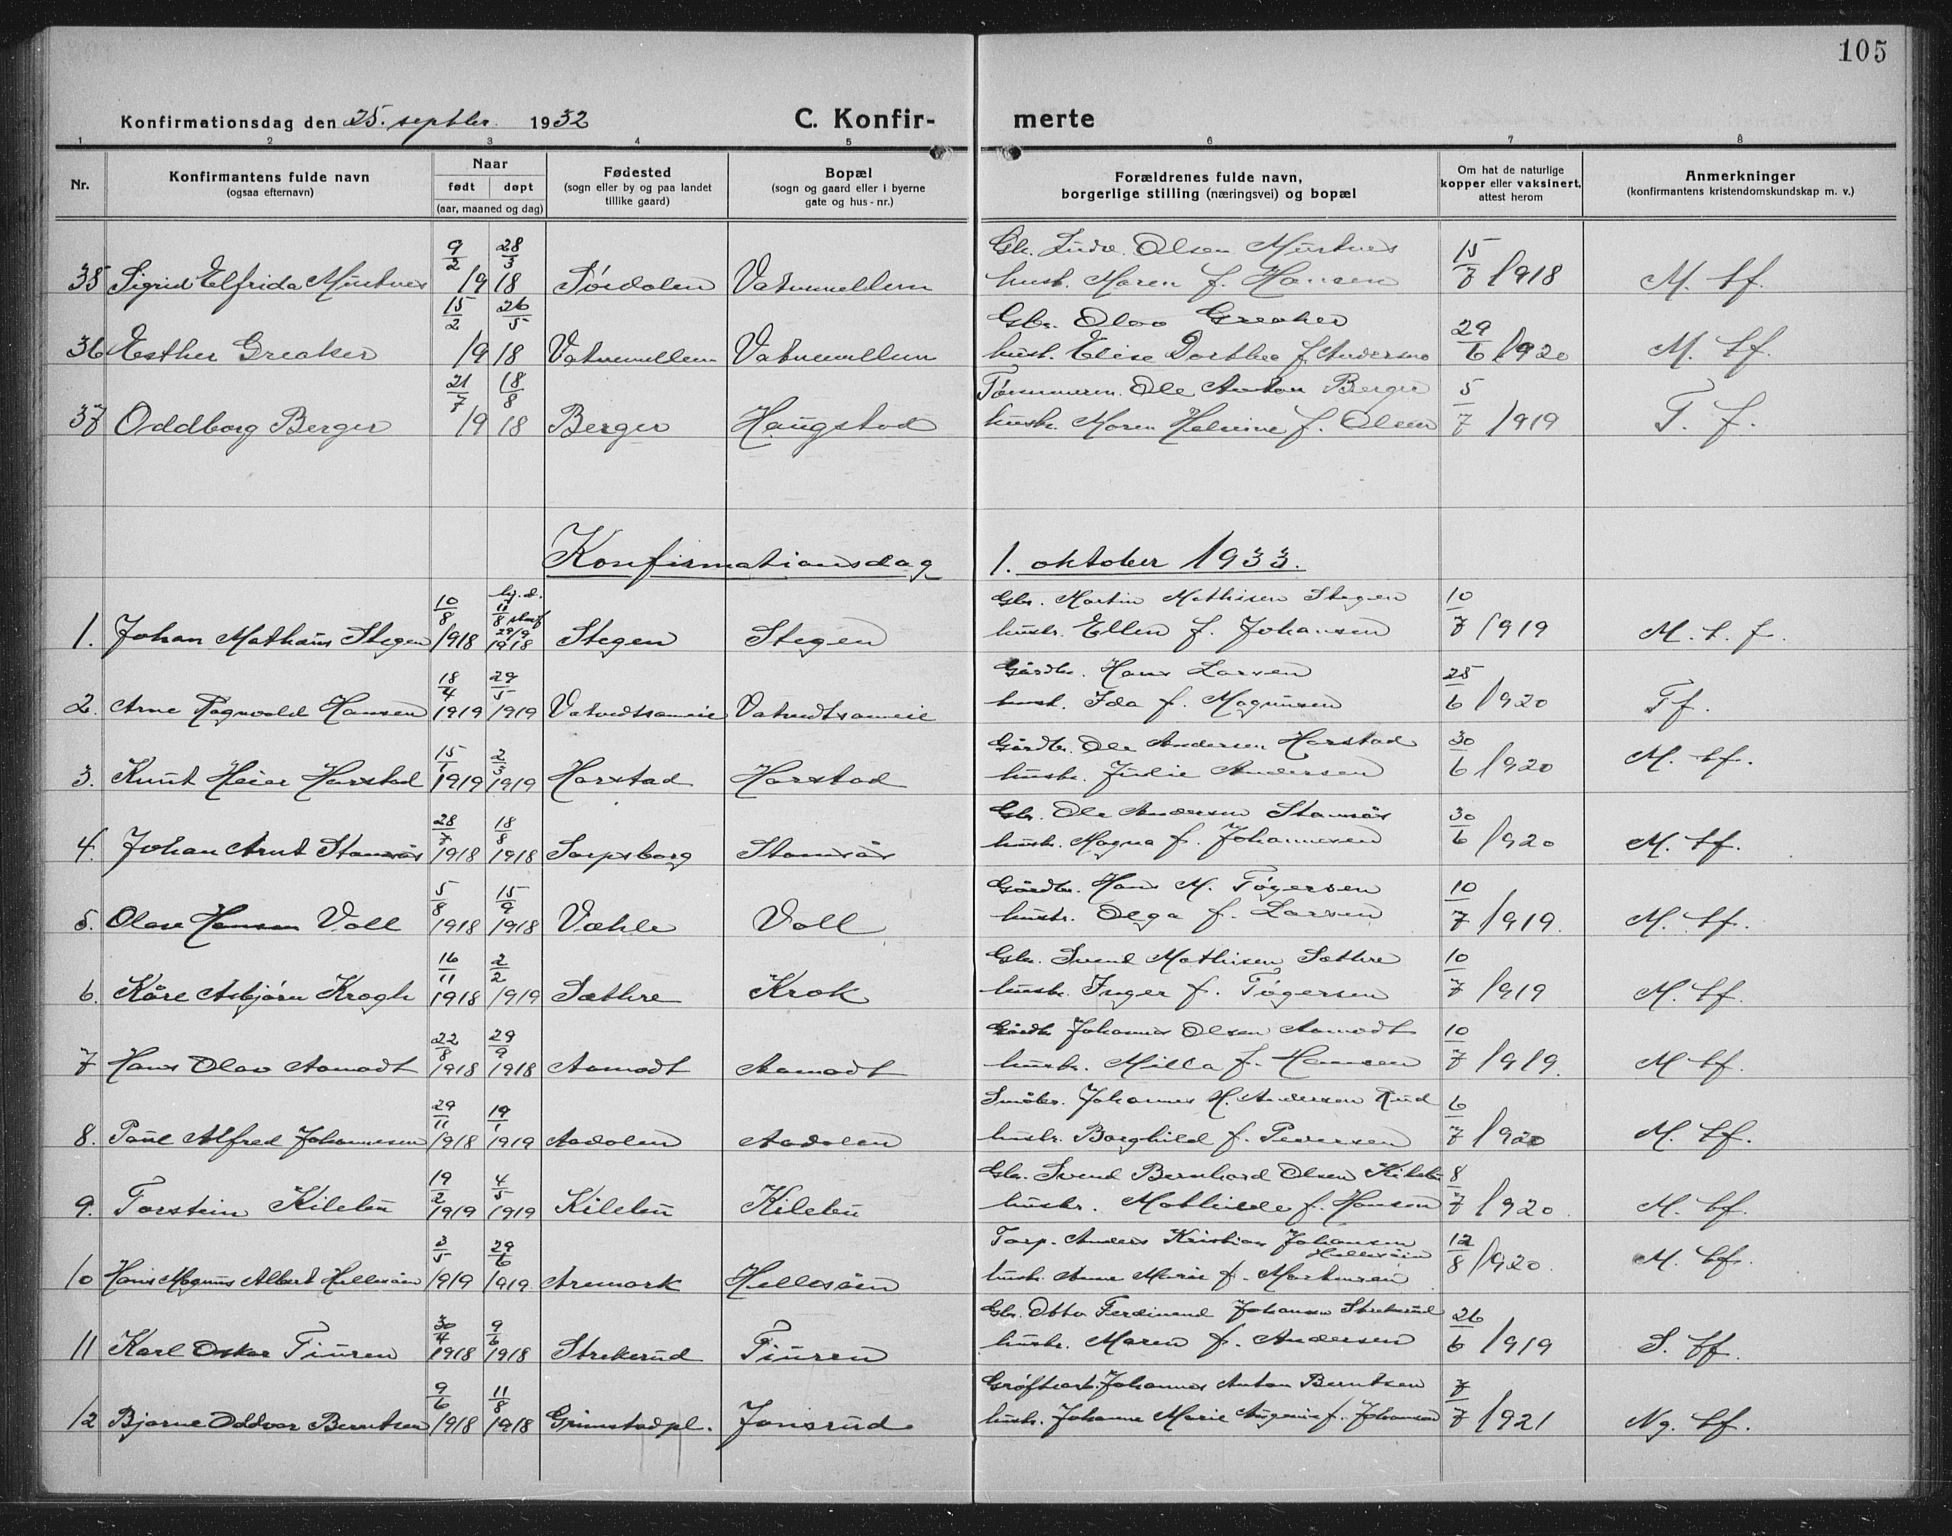 105
Konfirmationsdag den 25. septbr. 1932
C. Konfir- merte
1 2 3 4 5 6 7 8
Nr.
Konfirmantens fulde navn
(ogsaa efternavn)
Naar
født døpt
(aar, maaned og dag)
Fødested
(sogn eller by og paa landet
tillike gaard)
Bopæl
(sogn og gaard eller i byerne
gate og hus-nr.)
Forældrenes fulde navn,
borgerlige stilling (næringsvei) og bopæl
Om hat de naturlige
kopper eller vaksinert,
attest herom
Anmerkninger
(konfirmantens kristendomskundskap m. v.)
9/2 28/3 Gbr. Olsen 15/7
35 Sigrid Elfrida 1918 husb. Maren f. Hansen 1918 M. tf.
15/2 26/5 Gbr. Olav Greaker 29/6
36 Esther Greaker 1918 husb. Elise Dorthea f. Andersen 1920 M. tf.
21/7 18/8 Ole Anton Berger 5/7
37 Oddborg Berger 1918 Berger Haugstad hustr. Maren f. Olsen 1919 T. f.
Konfirmationsdag 1. oktober 1933.
10/8 hj.d. 11/8 stadf 29/9 Gbr. Martin Mathisen Stegen 10/7
1. Johan Mathæus Stegen 1918 1918 Stegen Stegen hustr. Ellen f. Johansen 1919 M. t. f.
18/4 29/5 Gårdbr. Hans Larsen 25/6
2. Arne Ragnvald Hansen 1919 1919 Vatvedtsameie Vatvedtsameie hustr. Ida f. Magnusen 1920 Tf.
15/1 2/3 Gårdbr. Ole Andersen Harstad 30/6
3. Knut Meier Harstad 1919 1919 Harstad Harstad hustr. Julie Andersen 1920 M. tf.
28/7 18/8 Gbr. Ole Andersen Stamsås 30/6
4. Johan Arnt Stamsås 1918 1918 Sarpsborg Stamsås hustr. Magna f. Johannesen 1920 M. tf.
5/8 15/9 Gårdbr. Hans M. Tøgersen 10/7
5. Olase Hansen Voll 1918 1918 Væhle Voll hustr. Olga f. Larsen 1919. M. tf.
16/11 2/2 Gbr. Svend Mathisen Sæthre 10/7
6. Kåre Asbjørn Krogh 1918 1919 Sæthre Krok hustr. Inger f. Tøgersen 1919 M. tf.
22/8 29/9 Gårdbr Johannes Olsen Aamodt 10/7
7 Hans Olav Aamodt 1918 1918 Aamodt Aamodt hustr. Milla f. Hansen 1919. M tf.
29/11 19/1 Småbr. Johannes M. Andersen Rud 6/7
8. Paul Alfred Johannesen 1918 1919 Aadalen Aadalen hustr. Borghild f. Pedersen 1920 M. tf.
19/2 4/5 Gbr. Svend Bernhard Olsen Kilebu 8/7
9. Torstein Kilebu 1919 1919 Kilebu Kilebu hustr. Mathilde f. Hansen 1920. M. tf.
3/5 29/6 Torp. Anders Kristian Johansen Hellesåen 12/8
10 Hans Magnus Albert Hellesåen 1919 1919. Aremark Hellesåen hustr. Anne Marie f. Martinsen 1920. M. tf.
30/4 9/6 Gbr. Otto Ferdinand Johansen Strekerud 26/6
11 Karl Oskar Tiuren 1918 1918 Strekerud Tiuren hustr. Maren f. Andersen 1919 S. tf.
9/6 11/8 Grøftearb. Johannes Anton Berntsen 7/7
12 Bjarne Oddvar Berntsen 1918 1918 Grimstadpl. Jonsrud hustr. Johanne Marie f. Johansen 1921 Ng. tf.